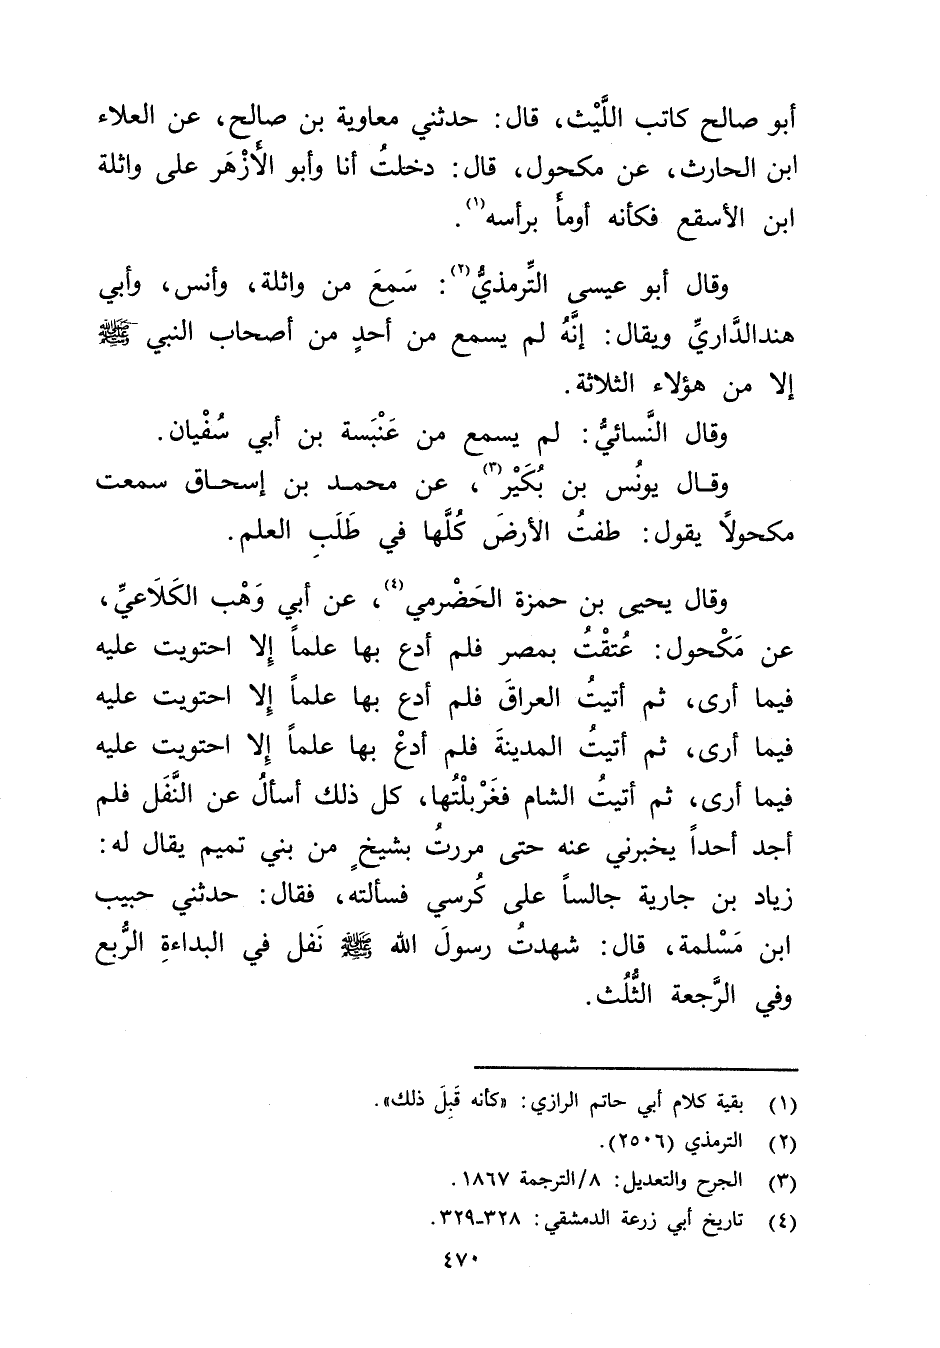 أبو صالح كاتب اللَّيْث، قال: حدثني معاوية بن صالح، عن العلاء
ابن الحارث، عن مكحول، قال: دخلتُ أنا وأبو الأَزْهَر على واثلة
ابن الأسقع فكأنه أومأ برأسه(١).
وقال أبو عيسى التِّرمذيُّ(٢): سَمِعَ من واثلة، وأنس، وأبي
هندالدَّاريِّ ويقال: إنَّهُ لم يسمع من أحدٍ من أصحاب النبي ﷺ
إلا من هؤلاء الثلاثة.
وقال النَّسائيُّ: لم يسمع من عَنْبَسة بن أبي سُفْيان.
وقال يونُس بن بُكَيْر(٣)، عن محمد بن إسحاق سمعت
مكحولاً يقول: طفتُ الأرضَ كُلَّها في طَلَبِ العلم.
وقال يحيى بن حمزة الحَضْرمي(٤)، عن أبي وَهْب الكَلَاعيِّ،
عن مَكْحول: عُتقْتُ بمصر فلم أدع بها علماً إلا احتويت عليه
فيما أرى، ثم أتيتُ العراقَ فلم أدع بها علماً إلا احتويت عليه
فيما أرى، ثم أتيتُ المدينةَ فلم أدعْ بها علماً إلا احتويت عليه
فيما أرى، ثم أتيتُ الشام فغَرْبلْتُها، كل ذلك أسألُ عن النَّفَل فلم
أجد أحداً يخبرني عنه حتى مررتُ بشيخٍ من بني تميم يقال له:
زياد بن جارية جالساً على كُرسي فسألته، فقال: حدثني حبيب
ابن مَسْلمة، قال: شهدتُ رسولَ الله ﷺ نَفل في البداءةِ الرُّبع
وفي الرَّجعة الثُّلُث.
(١) بقية كلام أبي حاتم الرازي: «كأنه قَبِلَ ذلك».
(٢) الترمذي (٢٥٠٦).
(٣) الجرح والتعديل: ٨/الترجمة ١٨٦٧.
(٤) تاريخ أبي زرعة الدمشقي: ٣٢٨-٣٢٩.
٤٧٠